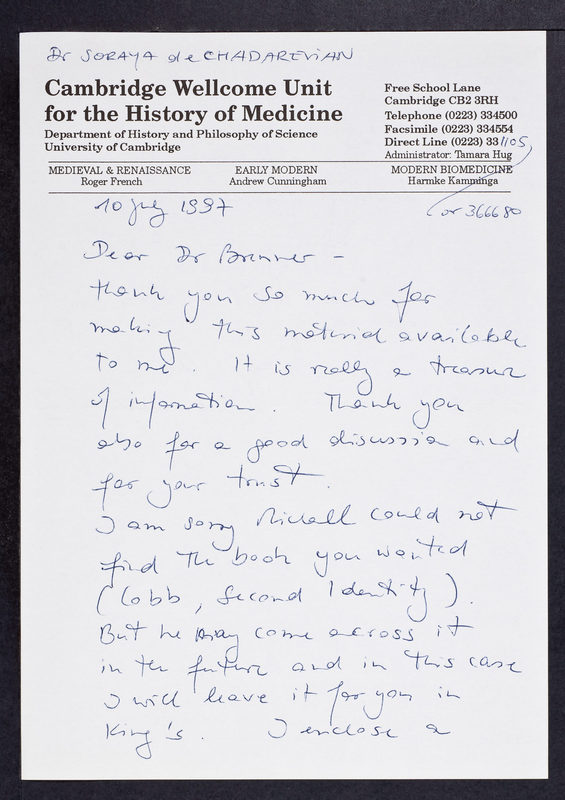 Dr SORAYA de CHADAREVIAN
Cambridge Wellcome Unit
for the History of Medicine
Department of History and Philosophy of Science
University of Cambridge
Free School Lane
Cambridge CB2 3RH
Telephone (0223) 334500
Facsimile (0223) 334554
Direct Line (0223) 331105,
Administrator: Tamara Hug
MEDIEVAL & RENAISSANCE
Roger French
EARLY MODERN
Andrew Cunningham
MODERN BIOMEDICINE
Harmke Kamminga
or 366680
10 July 1997
Dear Dr Brenner –
thank you so much for
making this material available
to me. It is really a treasure
of information. Thank you
also for a good discussion and
for your trust.
I am sorry could not
find the book you wanted
(Cobb, Second Identity).
But he may come across it
in the future and in this case
I will leave it for you in
King's. I enclose a